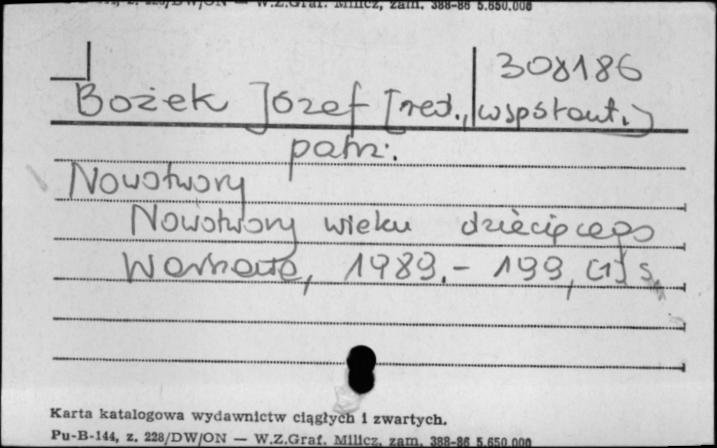 Pu-B-144, z. 228/DW/ON — W.Z.Graf. Milicz, zam. 388-86 5.650.000
308186
Bożek Józef [red., współaut.]
patrz:
Nowotwory
Nowotwory wieku dziecięcego
Warszawa, 1989. - 199, [1] s.
Karta katalogowa wydawnictw ciągłych i zwartych.
Pu-B-144, z. 228/DW/ON — W.Z.Graf. Milicz, zam. 388-86 5.650.000